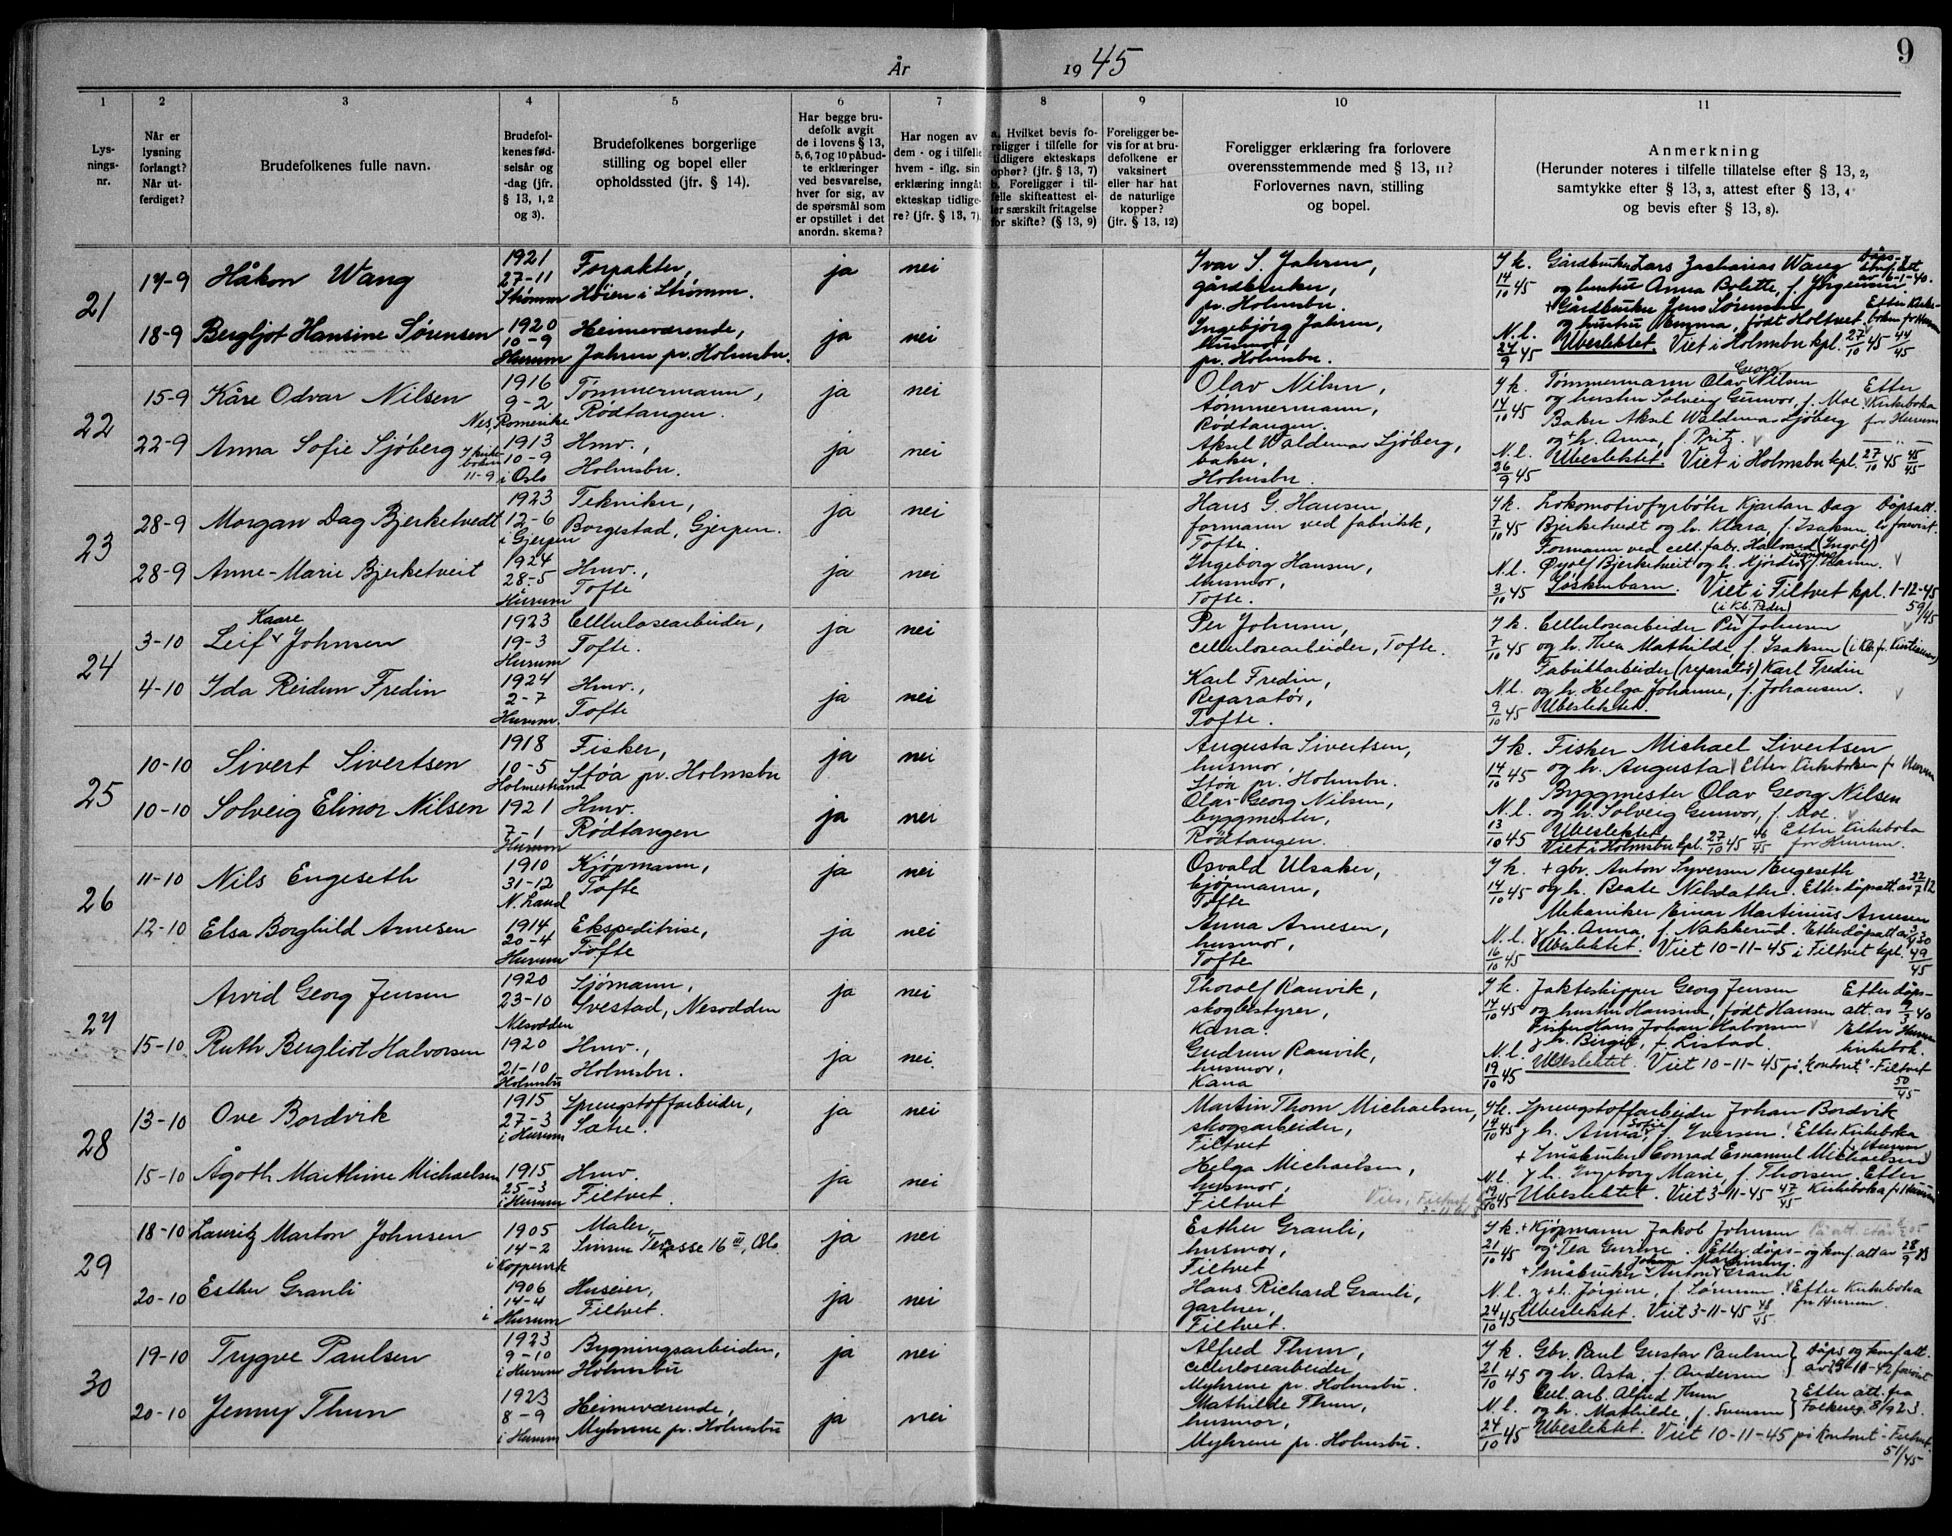 9
År 1945
1 2 3 4 5 6 7 8 9 10 11
Lysnings-nr.
Når er lysning forlangt? Når utferdiget?
Brudefolkenes fulle navn.
Brudefolkenes fødselsår og -dag (jfr. § 13, 1, 2 og 3).
Brudefolkenes borgerlige stilling og bopel eller opholdssted (jfr. § 14).
Har begge brudefolk avgit de i lovens § 13, 5, 6, 7 og 10 påbudte erklæringer ved besvarelse, hver for sig, av de spørsmål som er opstillet i det anordn. skema?
Har nogen av dem - og i tilfelle hvem - iflg. sin erklæring inngått ekteskap tidligere? (jfr. § 13, 7).
a. Hvilket bevis foreligger i tilfelle for tidligere ekteskaps ophør? (jfr. § 13, 7) b. Foreligger i tilfelle skifteattest eller særskilt fritagelse for skifte? (§ 13, 9)
Foreligger bevis for at brudefolkene er vaksinert eller har hat de naturlige kopper? (jfr. § 13, 12)
Foreligger erklæring fra forlovere overensstemmende med § 13, 11? Forlovernes navn, stilling og bopel.
Anmerkning (Herunder noteres i tilfelle tillatelse efter § 13, 2, samtykke efter § 13, 3, attest efter § 13, 4 og bevis efter § 13, 8).
21
14-9 Håkon Wang
1921 27-11 Strømm
Forpakter, Høien i Strømm.
ja nei
Ivar S. Jahren, gårdbruker, pr. Holmsbu.
18-9 Bergljot Hansine Sørensen
1920 10-9 Hurum
Heimeværende, Jahren pr. Holmsbu.
ja nei
Ingebjørg Jahren, husmor, pr. Holmsbu.
Y k. 14/10 45 Gårdbruker Lars Zacharias Wang
og hustru Anna Bolette, f. Jørgensen. av 6-1-40.
+ Gårdbruker Jens Sørensen
og hustru Emma, født Holtvet. Etter kirkeboken for Hurum
N. l. 24/9 45 Ubeslektet. Viet i Holmsbu kpl. 27/10 45 44/45
22
15-9 Kåre Odvar Nilsen
1916 9-2 Nes, Romerike
Tømmermann, Rødtangen.
ja nei
Olav Nilsen, tømmermann, Rødtangen.
22-9 Anna Sofie Sjöberg
I kirkeboken 11-9
1913 10-9 i Oslo
Hmv., Holmsbu.
ja nei
Aksel Waldemar Sjöberg, baker, Holmsbu.
Y k. 14/10 45 Tømmermann Olav Georg Nilsen
og hustru Solveig Gunvor, f. Moe Etter Kirkeboka for Hurum
Baker Aksel Waldemar Sjöberg
og + h. Anna, f. Pritz.
N. l. 26/9 45 Ubeslektet. Viet i Holmsbu kpl. 27/10 45 45/45
23
28-9 Morgan Dag Bjerketvedt
1923 12-6 i Gjerpen
Tekniker, Borgestad, Gjerpen.
ja nei
Hans G. Hansen, formann ved fabrikk, Tofte
28-9 Anne-Marie Bjerketveit
1924 28-5 Hurum
Hmv., Tofte
ja nei
Ingeborg Hansen, husmor, Tofte.
Y k. 7/10 45 Lokomotivfyrbøter Kjartan Dag
Bjerketvedt og h. Klara, f. Isaksen Dåpsatt. er forevist.
Formann ved cell.fabr. Halvard (Ingolf)
N. l. Øyolf Bjerketveit og h. Hjördis Signora f. Isaksen.
3/10 45 Søskenbarn. Viet i Filtvet kpl. 1-12-45 59/45
24
3-10 Leif Kaare Johnsen
1923 19-3 Hurum
Cellulosearbeider, Tofte.
ja nei
Per Johnsen, cellulosearbeider, Tofte.
4-10 Ida Reidun Fredin
1924 2-7 Hurum
Hmv., Tofte
ja nei
Karl Fredin, Reparatør, Tofte.
Y k. 7/10 45 Cellulosearbeider Per (i Kb. Peder) Johnsen
og h. Thea Mathilde, f. Isaksen
Fabrikkarbeider (reparatør) Karl Fredin
N. l. og h. Helga Johanne, f. Johansen.
9/10 45 Ubeslektet.
25
10-10 Sivert Sivertsen
1918 10-5 Holmestrand
Fisker, Støa pr. Holmsbu
ja nei
Augusta Sivertsen, husmor, Støa pr. Holmsbu.
10-10 Solveig Elinor Nilsen
1921 7-1 Hurum
Hmv. Rødtangen
ja nei
Olav Georg Nilsen, byggmester, Rødtangen.
Y k. 14/10 45 Fisker Michael Sivertsen
og h. Augusta Etter Kirkeboken for Hurum
Byggmester Olav Georg Nilsen
N. l. og h. Solveig Gunvor, f. Moe.
13/10 45 Ubeslektet Etter Kirkeboka for Hurum.
Viet i Holmsbu kpl. 27/10 45 46/45
26
11-10 Nils Engeseth
1910 31-12 N. Land
Kjøpmann, Tofte
ja nei
Osvald Ulsaker, kjøpmann, Tofte
12-10 Elsa Borghild Arnesen
1914 20-4 Hurum
Ekspeditrise, Tofte
ja nei
Anna Arnesen, husmor, Tofte
Y k. 14/10 45 + gbr. Anton Syversen Engeseth
og h. Beate Nilsdatter. Etter dåpsatt. av 22/7 12
Mekaniker Einar Martinius Arnesen
N. l. g h. Anna, f. Nakkerud. Etter dåpsatt av
16/10 45 Ubeslektet. Viet 10-11-45 i Filtvet kpl. 49/45
27
Arvid Georg Jensen
1920 23-10 Nesodden
Sjømann, Svestad, Nesodden
ja nei
Thorolf Ranvik, skogbestyrer, Kana.
15-10. Ruth Bergliot Halvorsen
1920 21-10 Holmsbu
Hmv., Holmsbu.
ja nei.
Gudrun Ranvik, husmor, Kana
Y k. 14/10 45 Jakteskipper Georg Jensen
og hustru Hansine, født Hansen Etter dåpsatt. av
Fisker Hans Johan Halvorsen Etter Hurum kirkebok.
N. l. g h. Birgit, f. Listad.
19/10 45 Ubeslektet. Viet 10-11-45 på "kontoret" - Filtvet 50/45
28
13-10 Ove Bordvik
1915 27-3 i Hurum
Sprengstoffarbeider, Sætre.
ja nei
Martin Thom Michaelsen, skogsarbeider, Filtvet
15-10 Ågoth Marthine Michaelsen
1915 25-3 i Hurum
Hmv. Filtvet.
ja nei
Helga Michaelsen, husmor, Filtvet
Y k. 14/10 45 Sprengstoffarbeider Johan Bordvik
g h. Anna Sofie, f. Iversen. Etter Kirkeboka f. Hurum
+ Småbruker Conrad Emanuel Michaelsen
N. l. g h. Ingeborg Marie, f. Thorsen. Etter
19/10 45 Ubeslektet. Viet 3-11-45 47/45 Kirkeboka f. Hurum
29
18-10 Lauritz Marton Johnsen
1905 14-2 i Koppervik
Maler, Sinsen Terasse 16 III, Oslo
ja nei
Esther Granli, husmor, Filtvet
20-10 Esther Granli
1906 14-4 i Hurum
Huseier, Filtvet.
ja nei
Hans Richard Granli, gartner, Filtvet.
Y k. 21/10 45 + Kjøpmann Jakob Johnsen
og + Tea Gurine. Etter dåps- og konf. att av 28/9
+ Småbruker Johan Anton Granli
N. l. g + h. Jørgine, f. Sørensen. Etter Kirkeboka for Hurum.
24/10 45 Ubeslektet. Viet 3-11-45 48/45
30
19-10 Trygve Paulsen
1923 9-10 i Hurum
Bygningsarbeider, Holmsbu
ja nei
Alfred Thun, cellulosearbeider, Myhrene pr. Holmsbu.
20-10 Jenny Thun
1923 8-9 i Hurum
Heimeværende, Myhrene pr. Holmsbu
ja nei
Mathilde Thun, husmor, Myhrene pr. Holmsbu.
Y k. 21/10 45 Gbr. Paul Gustav Paulsen } Dåps og konf. att.
og h. Asta, f. Andersen } forevist
Cell. arb. Alfred Thun } Etter att. fra
N. l. og h. Mathilde, f. Svensen } Folkereg. 8/9 23.
24/10 45 Ubeslektet. Viet 10-11-45 på kontoret - Filtvet. 51/45